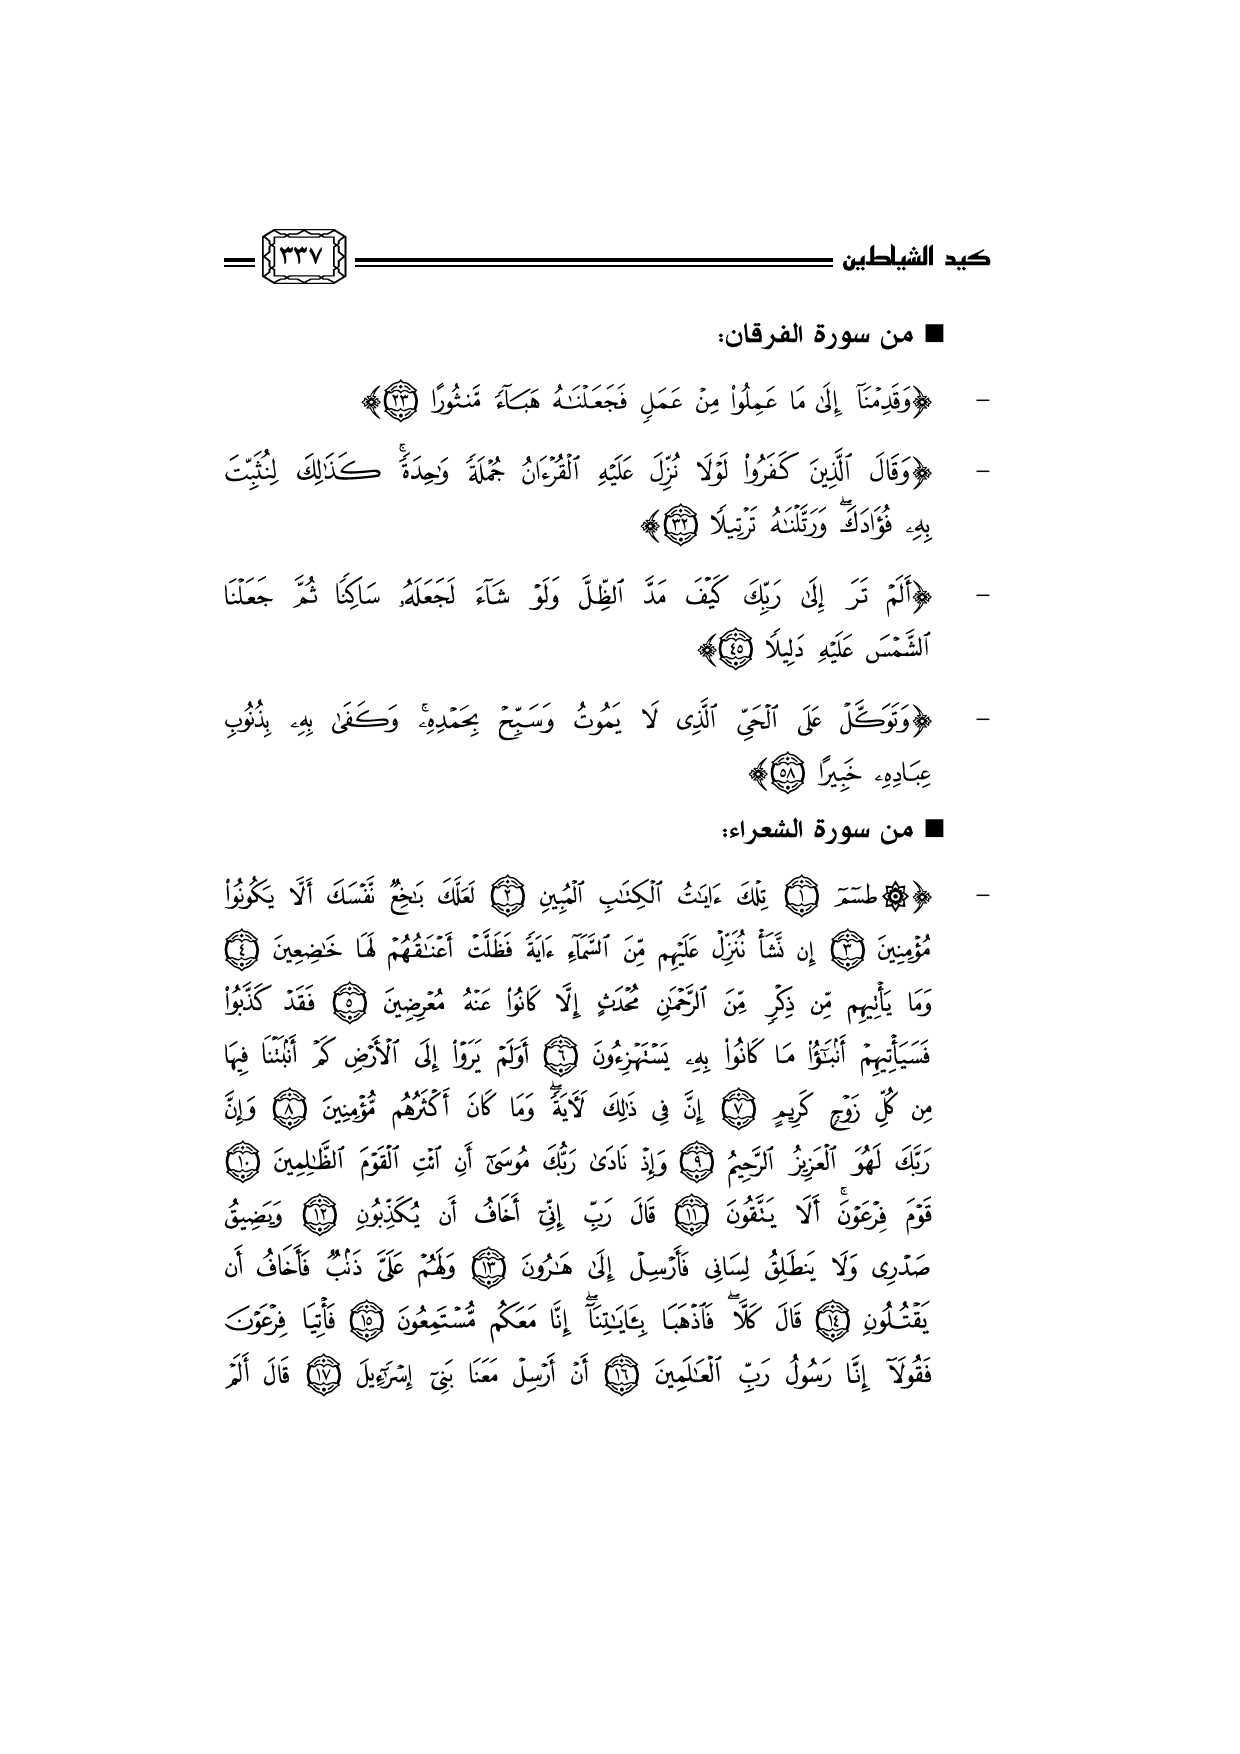 كيد الشياطين ٣٣٧
■ من سورة الفرقان:
- ﴿وَقَدِمْنَآ إِلَىٰ مَا عَمِلُوا۟ مِنْ عَمَلٍ فَجَعَلْنَـٰهُ هَبَآءً مَّنثُورًا ٢٣﴾
- ﴿وَقَالَ ٱلَّذِينَ كَفَرُوا۟ لَوْلَا نُزِّلَ عَلَيْهِ ٱلْقُرْءَانُ جُمْلَةً وَٰحِدَةً ۚ كَذَٰلِكَ لِنُثَبِّتَ
بِهِۦ فُؤَادَكَ ۖ وَرَتَّلْنَـٰهُ تَرْتِيلًا ٣٢﴾
- ﴿أَلَمْ تَرَ إِلَىٰ رَبِّكَ كَيْفَ مَدَّ ٱلظِّلَّ وَلَوْ شَآءَ لَجَعَلَهُۥ سَاكِنًا ثُمَّ جَعَلْنَا
ٱلشَّمْسَ عَلَيْهِ دَلِيلًا ٤٥﴾
- ﴿وَتَوَكَّلْ عَلَى ٱلْحَىِّ ٱلَّذِى لَا يَمُوتُ وَسَبِّحْ بِحَمْدِهِۦ ۚ وَكَفَىٰ بِهِۦ بِذُنُوبِ
عِبَادِهِۦ خَبِيرًا ٥٨﴾
■ من سورة الشعراء:
- ﴿۞ طسٓمٓ ١ تِلْكَ ءَايَـٰتُ ٱلْكِتَـٰبِ ٱلْمُبِينِ ٢ لَعَلَّكَ بَـٰخِعٌ نَّفْسَكَ أَلَّا يَكُونُوا۟
مُؤْمِنِينَ ٣ إِن نَّشَأْ نُنَزِّلْ عَلَيْهِم مِّنَ ٱلسَّمَآءِ ءَايَةً فَظَلَّتْ أَعْنَـٰقُهُمْ لَهَا خَـٰضِعِينَ ٤
وَمَا يَأْتِيهِم مِّن ذِكْرٍ مِّنَ ٱلرَّحْمَـٰنِ مُحْدَثٍ إِلَّا كَانُوا۟ عَنْهُ مُعْرِضِينَ ٥ فَقَدْ كَذَّبُوا۟
فَسَيَأْتِيهِمْ أَنۢبَـٰٓؤُا۟ مَا كَانُوا۟ بِهِۦ يَسْتَهْزِءُونَ ٦ أَوَلَمْ يَرَوْا۟ إِلَى ٱلْأَرْضِ كَمْ أَنۢبَتْنَا فِيهَا
مِن كُلِّ زَوْجٍ كَرِيمٍ ٧ إِنَّ فِى ذَٰلِكَ لَـَٔايَةً ۖ وَمَا كَانَ أَكْثَرُهُم مُّؤْمِنِينَ ٨ وَإِنَّ
رَبَّكَ لَهُوَ ٱلْعَزِيزُ ٱلرَّحِيمُ ٩ وَإِذْ نَادَىٰ رَبُّكَ مُوسَىٰٓ أَنِ ٱئْتِ ٱلْقَوْمَ ٱلظَّـٰلِمِينَ ١٠
قَوْمَ فِرْعَوْنَ ۚ أَلَا يَتَّقُونَ ١١ قَالَ رَبِّ إِنِّىٓ أَخَافُ أَن يُكَذِّبُونِ ١٢ وَيَضِيقُ
صَدْرِى وَلَا يَنطَلِقُ لِسَانِى فَأَرْسِلْ إِلَىٰ هَـٰرُونَ ١٣ وَلَهُمْ عَلَىَّ ذَنۢبٌ فَأَخَافُ أَن
يَقْتُلُونِ ١٤ قَالَ كَلَّا ۖ فَٱذْهَبَا بِـَٔايَـٰتِنَآ ۖ إِنَّا مَعَكُم مُّسْتَمِعُونَ ١٥ فَأْتِيَا فِرْعَوْنَ
فَقُولَآ إِنَّا رَسُولُ رَبِّ ٱلْعَـٰلَمِينَ ١٦ أَنْ أَرْسِلْ مَعَنَا بَنِىٓ إِسْرَٰٓءِيلَ ١٧ قَالَ أَلَمْ